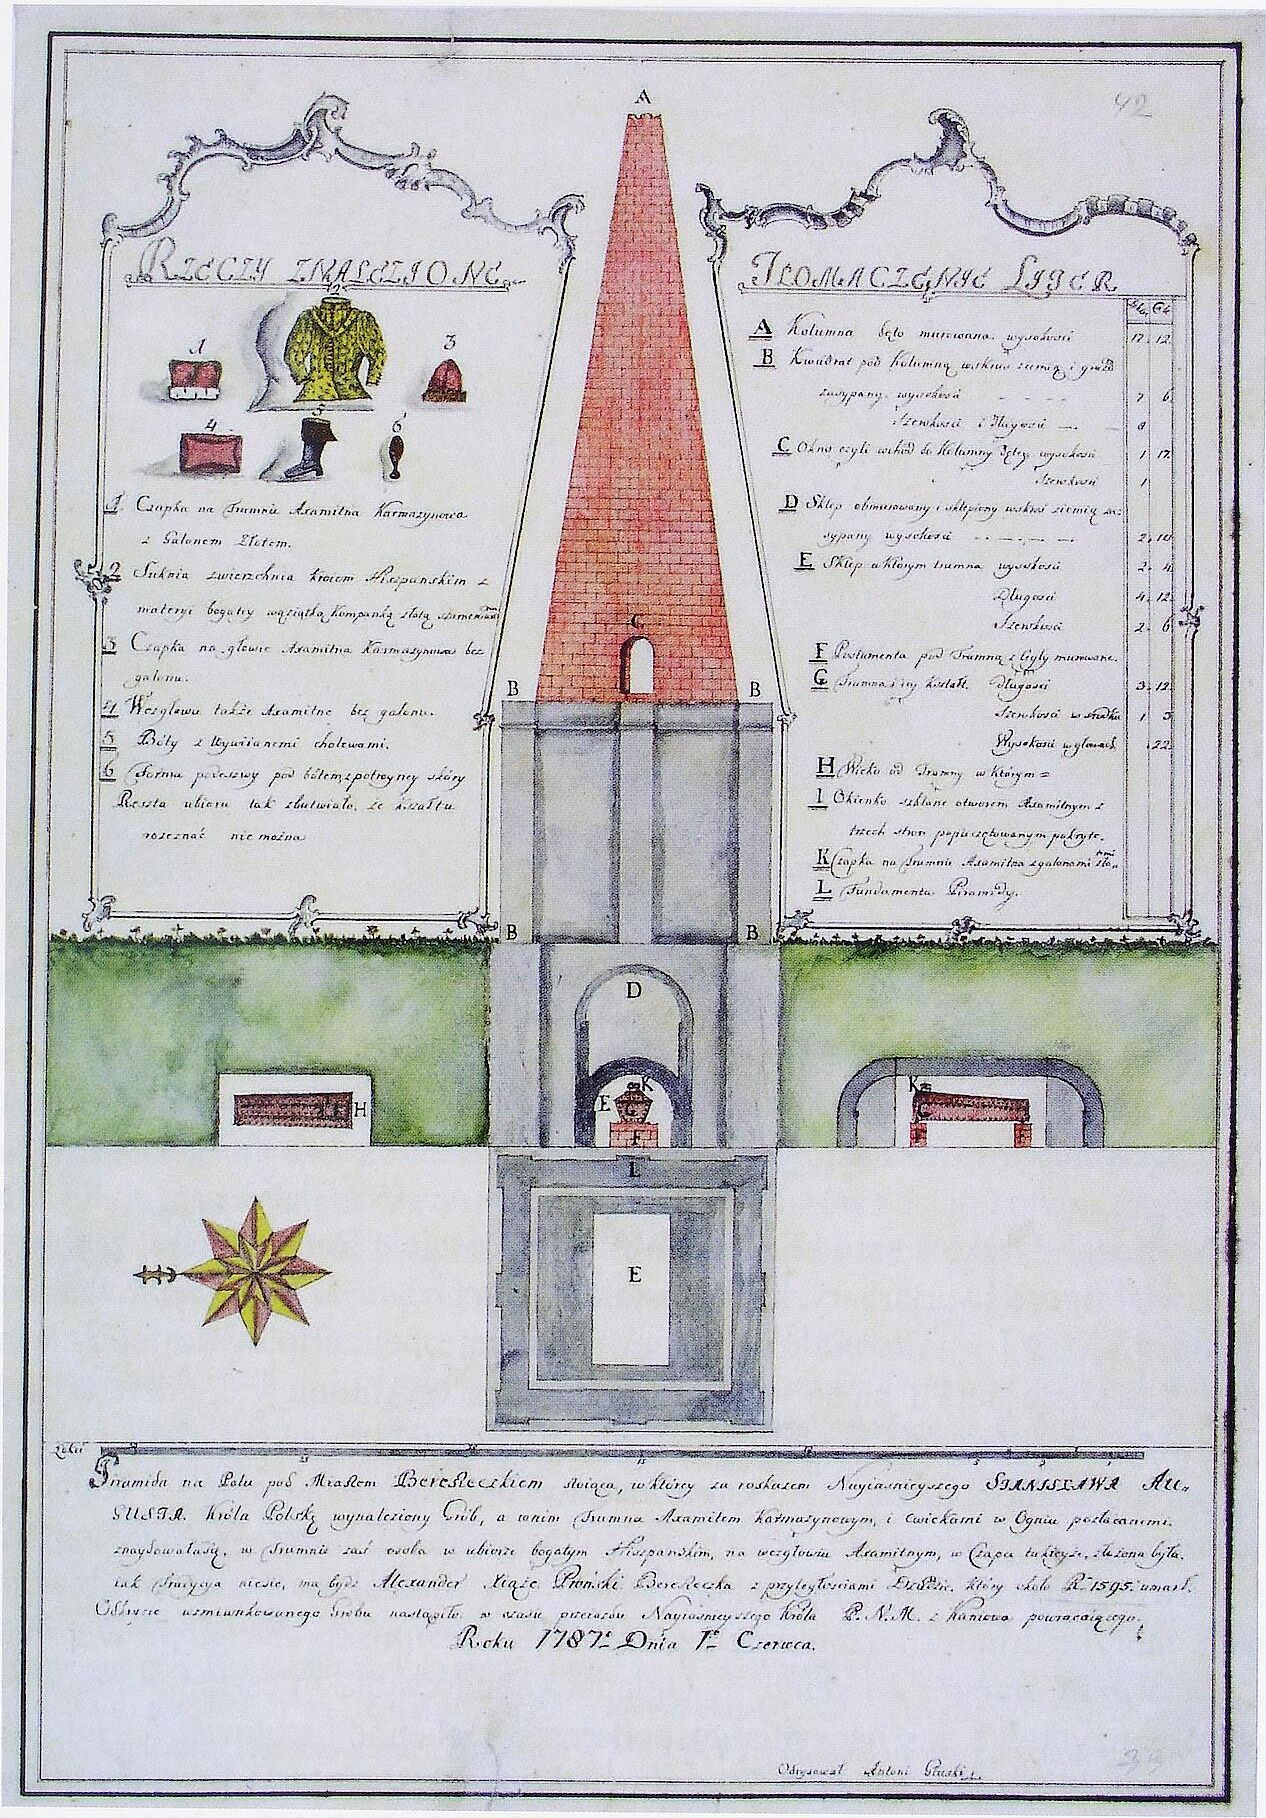 42
A
RZECZY ZNALEZIONE
1
2
3
4
5
6
1 Czapka na Trumnie Axamitna Karmazynowa
z Galonem Złotem.
2 Suknia zwierzchnia kroiem Hiszpanskim z
materyi bogatey wąziątką Kompanką złotą
3 Czapka na głowie Axamitna Karmazynowa bez
galonu.
4 Wezgłowie także Axamitne bez galonu.
5 Bóty z Wywiianemi cholewami.
6 Forma podeszwy pod bótem z potroyney skóry
Reszta ubioru tak zbutwiało, że kształtu
rozeznać nie można
TŁOMACZENIE LITER
A Kolumna Sęto murowana wysokosci 17. 12
B Kwadrat pod Kolumną wskroś ziemią i gruzem
zasypany. wysokosci 7 6
Szerokosci i Długosci 8
C Okno czyli wchód do Kolumny Sętey wysokosci 1. 17
Szerokosci 1
D Sklep obmurowany i sklepiony wskroś ziemią za:
sypany wysokosci 2. 10
E Sklep w ktorym trumna wysokosci 2. 4
Długosci 4. 12
Szerokosci 2. 6
F Postumenta pod Trumną z Cegły murowane.
G Trumna i iey kształt. Długosci 3. 12
Szerokosci w srodku 1 3
Wysokosci w głowach .22
H Wieko od Trumny w którym =
I Okienko szklane otworem Axamitnym z
trzech stron popieczętowanym pokryte.
K Czapka na Trumnie Axamitna z galonami
L Fundamenta Piramidy.
C
B B
B B
D
K
E
G
F
H
K
G
F F
L
E
Łokci
Piramida na Polu pod Miastem Beresteczkiem stoiąca, w ktorey za roskazem Nayiasnieyszego STANISŁAWA AU-
GUSTA. Króla Polskę wynaleziony Grób, a w nim Trumna Axamitem Karmazynowym, i cwiekami w Ogniu pozłacanemi.
znaydowałasię. w Trumnie zaś osoba w ubiorze bogatym Hiszpanskim, na wezgłowiu Axamitnym, w Czapce takieyże, złożona była.
iak Tradycya niesie, ma bydź Alexander Xiąże Pronski Beresteczka z przyległosciami Dziedzic. który około R. 1595 umarł.
Odkrycie wzmiankowanego Grobu nastąpiło. w czasie przeiazdu Nayiasnieyszego Króla P. N. M. z Kaniowa powracaiącego.
Roku 1787º Dnia 1º Czerwca.
Odrysował Antoni